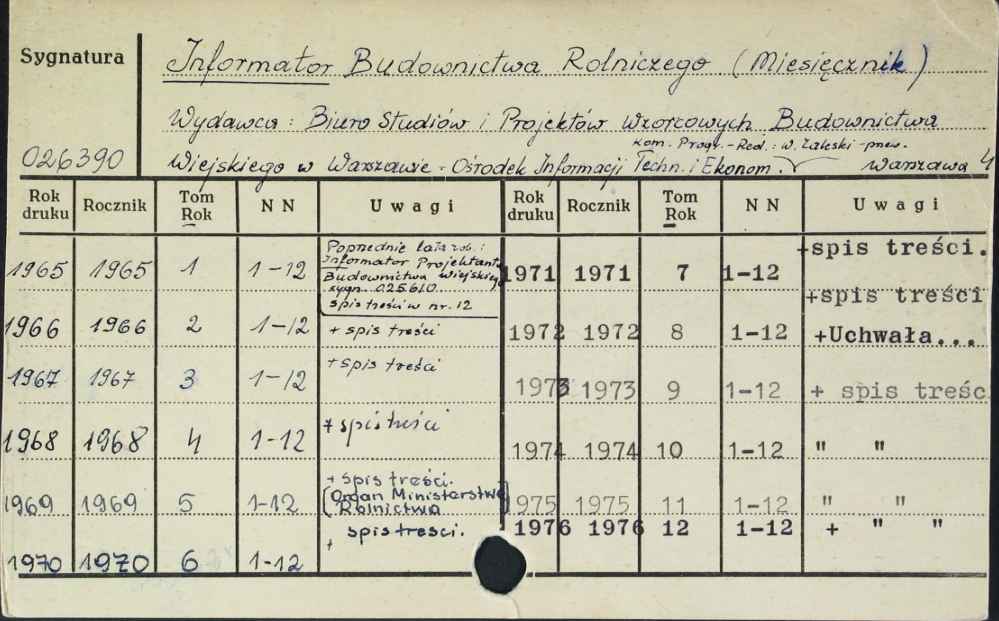 Sygnatura
Informator Budownictwa Rolniczego (Miesięcznik)
Wydawca: Biuro Studiów i Projektów Wzorcowych Budownictwa
kom. Progr.-Red.: W. Zaleski -przew.
026390 Wiejskiego w Warszawie - Ośrodek Informacji Techn. i Ekonom. Warszawa 4
Rok druku Rocznik Tom Rok NN Uwagi Rok druku Rocznik Tom Rok NN Uwagi
1965 1965 1 1-12
Poprzednie lata zob.:
Informator Projektanta
Budownictwa Wiejskiego
sygn. 025610
spis treści w nr. 12
1966 1966 2 1-12 + spis treści
1967 1967 3 1-12 + spis treści
1968 1968 4 1-12 + spis treści
1969 1969 5 1-12 + spis treści.
(Organ Ministerstwa
Rolnictwa)
1970 1970 6 1-12 + spis tresci.
1971 1971 7 1-12 +spis treści.
1972 1972 8 1-12 +spis treści
+Uchwała...
1973 1973 9 1-12 + spis treśc
1974 1974 10 1-12 " "
1975 1975 11 1-12 " "
1976 1976 12 1-12 + " "